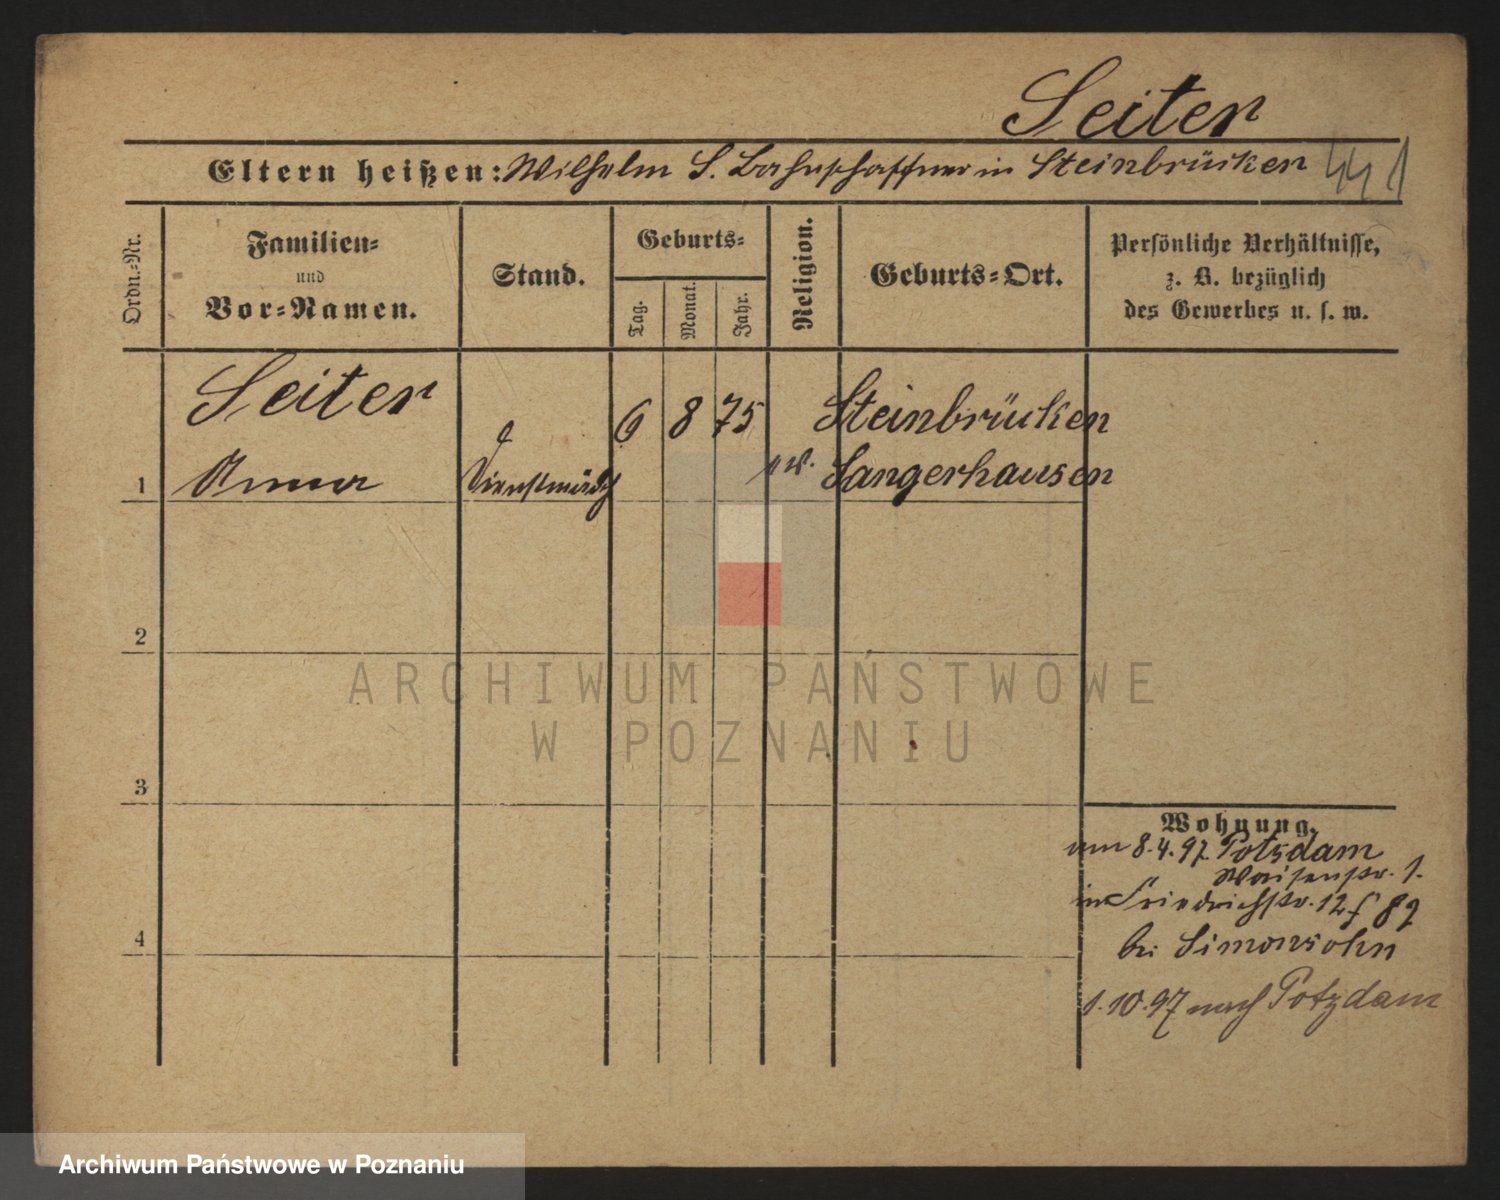 Seiter
Eltern heißen: Wilhelm S. Bahnschaffner in Steinbrücken
Ordn.-Nr.
Familien-
und
Vor-Namen.
Stand.
Geburts-
Tag.
Monat.
Jahr.
Religion.
Geburts-Ort.
Persönliche Verhältnisse,
z. B. bezüglich
des Gewerbes u. s. w.
Seiter
6 8 75
Steinbrücken
1 Anna
Dienstmädch
Sangerhausen
2
3
4
Wohnung.
am 8.4.97 Potsdam
Waisenstr. 1.
in Friedrichstr. 12
bei Simonsohn
1.10.97 nach Potzdam
ARCHIWUM PAŃSTWOWE
W POZNANIU
Archiwum Państwowe w Poznaniu